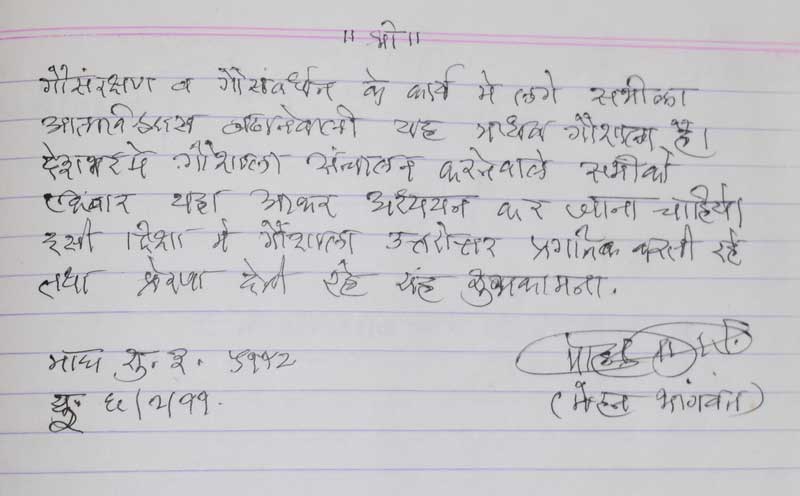 ॥ श्री ॥
गौसंरक्षण व गौसंवर्धन के कार्य में लगे सभीका
आत्मविश्वास बढानेवाली यह माधव गौशाला है।
देशभरमे गौशाला संचालन करनेवाले सभीको
एकबार यहा आकर अध्ययन कर जाना चाहिये।
इसी दिशा मे गौशाला उत्तरोत्तर प्रगति करती रहे
तथा प्रेरणा देती रहे यह शुभकामना.
माघ शु. ३. ५११२
६/२/११.
(मोहन भागवत)